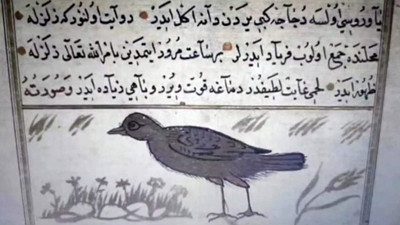 یاوروسی اولسه دجاجه کبی یردن دانه اکل ایدر روایت اولنور که زلزله
محلنده جمع اولوب فریاد ایدرلر برساعت مرور ایتمدین بامر الله تعالی زلزله
ظهور ایدر لحمی غایت لطیفدر دماغه قوت ویرر و باهی زیاده ایدر